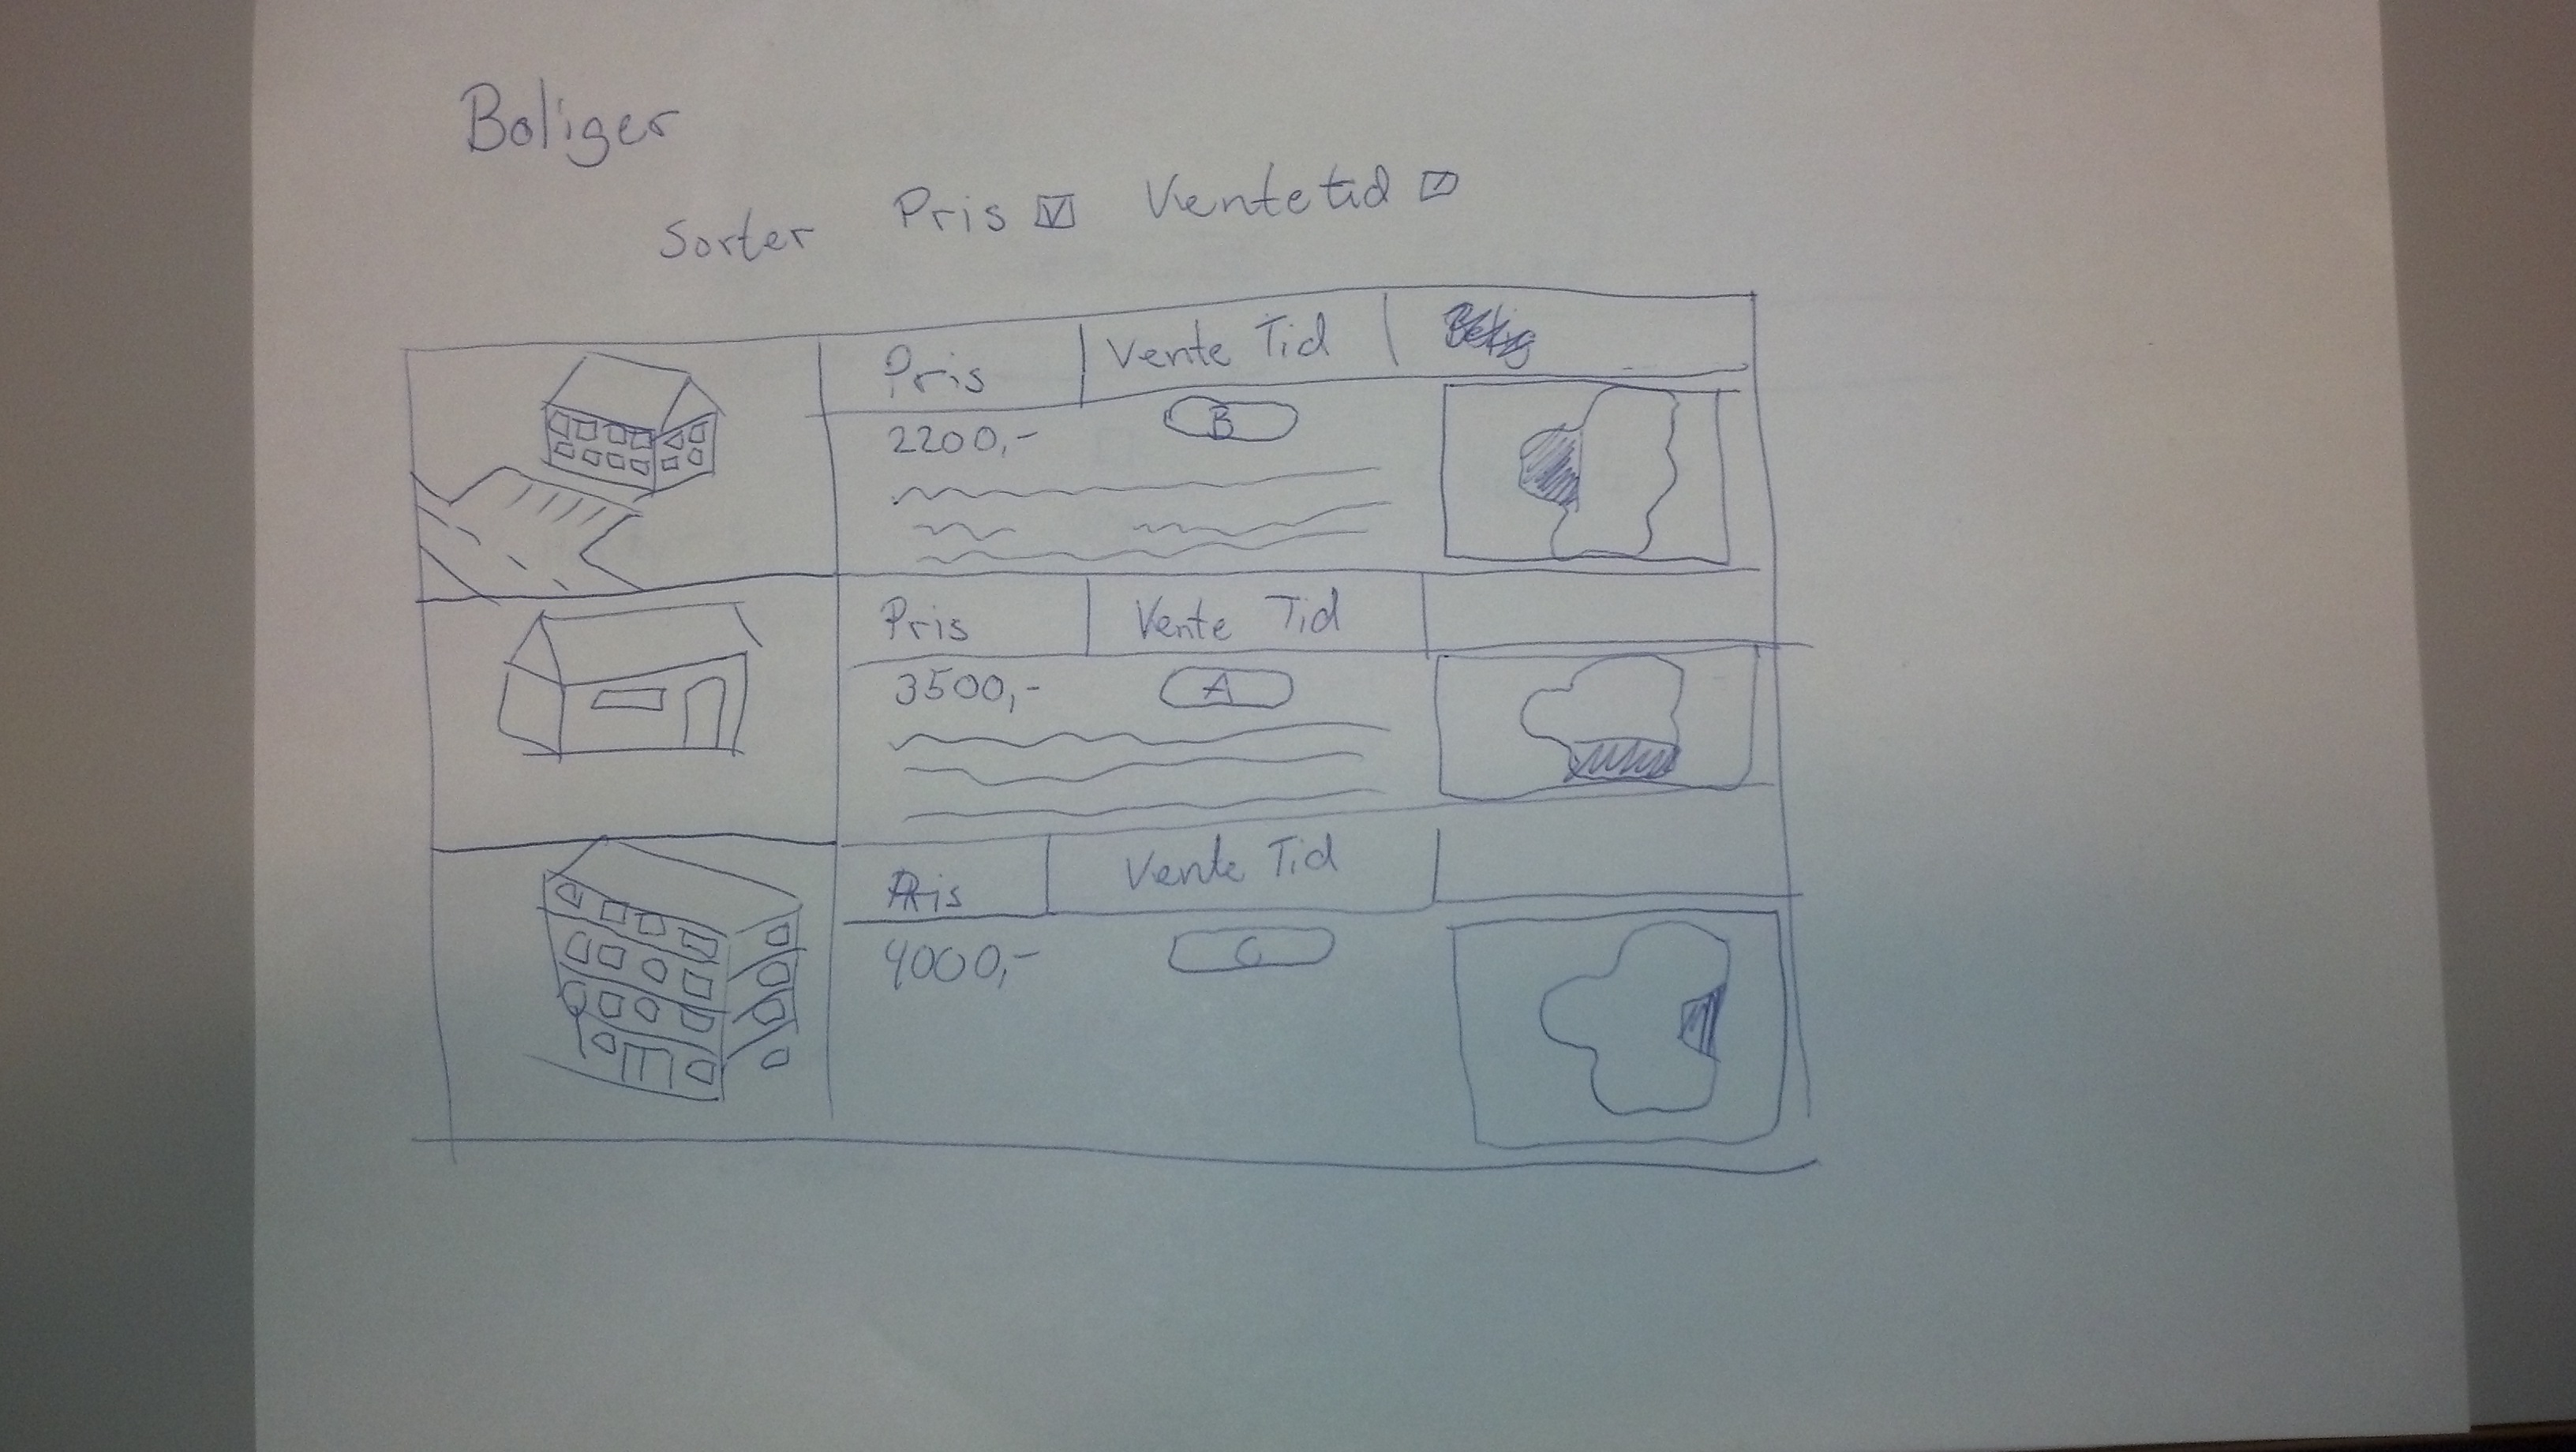 Boliger
Sorter Pris Ventetid
Pris Vente Tid
2200,- B
Pris Vente Tid
3500,- A
Pris Vente Tid
4000,- C